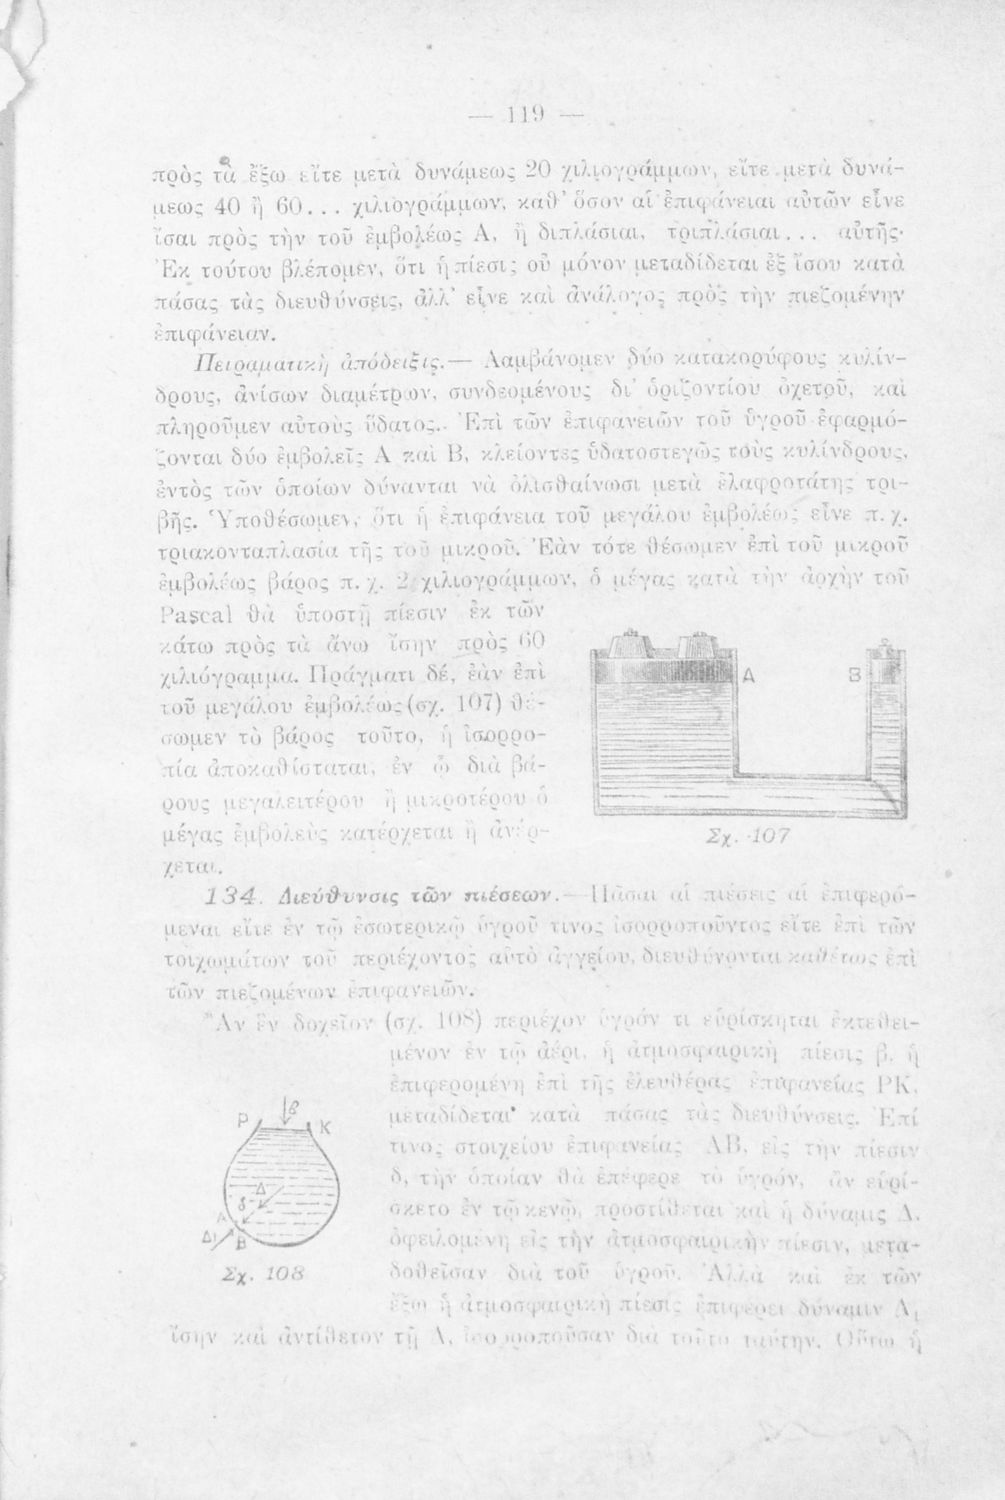 — 119 —
πρὸς τὰ ἔξω εἴτε μετὰ δυνάμεως 20 χιλιογράμμων, εἴτε μετὰ δυνά-
μεως 40 ἢ 60... χιλιογράμμων, καθ' ὅσον αἱ ἐπιφάνειαι αὐτῶν εἶνε
ἴσαι πρὸς τὴν τοῦ ἐμβολέως Α, ἢ διπλάσιαι, τριπλάσιαι... αὐτῆς·
Ἐκ τούτου βλέπομεν, ὅτι ἡ πίεσις οὐ μόνον μεταδίδεται ἐξ ἴσου κατὰ
πάσας τὰς διευθύνσεις, ἀλλ' εἶνε καὶ ἀνάλογος πρὸς τὴν πιεζομένην
ἐπιφάνειαν.
Πειραματικὴ ἀπόδειξις.— Λαμβάνομεν δύο κατακορύφους κυλίν-
δρους, ἀνίσων διαμέτρων, συνδεομένους δι' ὁριζοντίου ὀχετοῦ, καὶ
πληροῦμεν αὐτοὺς ὕδατος. Ἐπὶ τῶν ἐπιφανειῶν τοῦ ὑγροῦ ἐφαρμό-
ζονται δύο ἐμβολεῖς Α καὶ Β, κλείοντες ὑδατοστεγῶς τοὺς κυλίνδρους,
ἐντὸς τῶν ὁποίων δύνανται νὰ ὀλισθαίνωσι μετὰ ἐλαφροτάτης τρι-
βῆς. Ὑποθέσωμεν, ὅτι ἡ ἐπιφάνεια τοῦ μεγάλου ἐμβολέως εἶνε π. χ.
τριακονταπλασία τῆς τοῦ μικροῦ. Ἐὰν τότε θέσωμεν ἐπὶ τοῦ μικροῦ
ἐμβολέως βάρος π. χ. 2 χιλιογράμμων, ὁ μέγας κατὰ τὴν ἀρχὴν τοῦ
Pascal θὰ ὑποστῇ πίεσιν ἐκ τῶν
κάτω πρὸς τὰ ἄνω ἴσην πρὸς 60
χιλιόγραμμα. Πράγματι δέ, ἐὰν ἐπὶ
τοῦ μεγάλου ἐμβολέως (σχ. 107) θέ-
σωμεν τὸ βάρος τοῦτο, ἡ ἰσορρο-
πία ἀποκαθίσταται, ἐν ᾧ διὰ βά-
ρους μεγαλειτέρου ἢ μικροτέρου ὁ
μέγας ἐμβολεὺς κατέρχεται ἢ ἀνέρ-
χεται.
Α
Β
Σχ. 107
134. Διεύθυνσις τῶν πιέσεων.— Πᾶσαι αἱ πιέσεις αἱ ἐπιφερό-
μεναι εἴτε ἐν τῷ ἐσωτερικῷ ὑγροῦ τινος ἰσορροποῦντος εἴτε ἐπὶ τῶν
τοιχωμάτων τοῦ περιέχοντος αὐτὸ ἀγγείου, διευθύνονται καθέτως ἐπὶ
τῶν πιεζομένων ἐπιφανειῶν.
Ἂν ἓν δοχεῖον (σχ. 108) περιέχον ὑγρόν τι εὑρίσκηται ἐκτεθει-
μένον ἐν τῷ ἀέρι, ἡ ἀτμοσφαιρικὴ πίεσις β, ἡ
ἐπιφερομένη ἐπὶ τῆς ἐλευθέρας ἐπιφανείας ΡΚ,
μεταδίδεται κατὰ πάσας τὰς διευθύνσεις. Ἐπί
τινος στοιχείου ἐπιφανείας ΑΒ, εἰς τὴν πίεσιν
δ, τὴν ὁποίαν θὰ ἐπέφερε τὸ ὑγρόν, ἂν εὑρί-
σκετο ἐν τῷ κενῷ, προστίθεται καὶ ἡ δύναμις Δ,
ὀφειλομένη εἰς τὴν ἀτμοσφαιρικὴν πίεσιν, μετα-
δοθεῖσαν διὰ τοῦ ὑγροῦ. Ἀλλὰ καὶ ἐκ τῶν
ἔξω ἡ ἀτμοσφαιρικὴ πίεσις ἐπιφέρει δύναμιν Δ₁
ἴσην καὶ ἀντίθετον τῇ Δ, ἰσορροποῦσαν διὰ τοῦτο ταύτην. Οὕτω ἡ
Ρ
β
Κ
Δ
δ
Α
Δ₁
Β
Σχ. 108